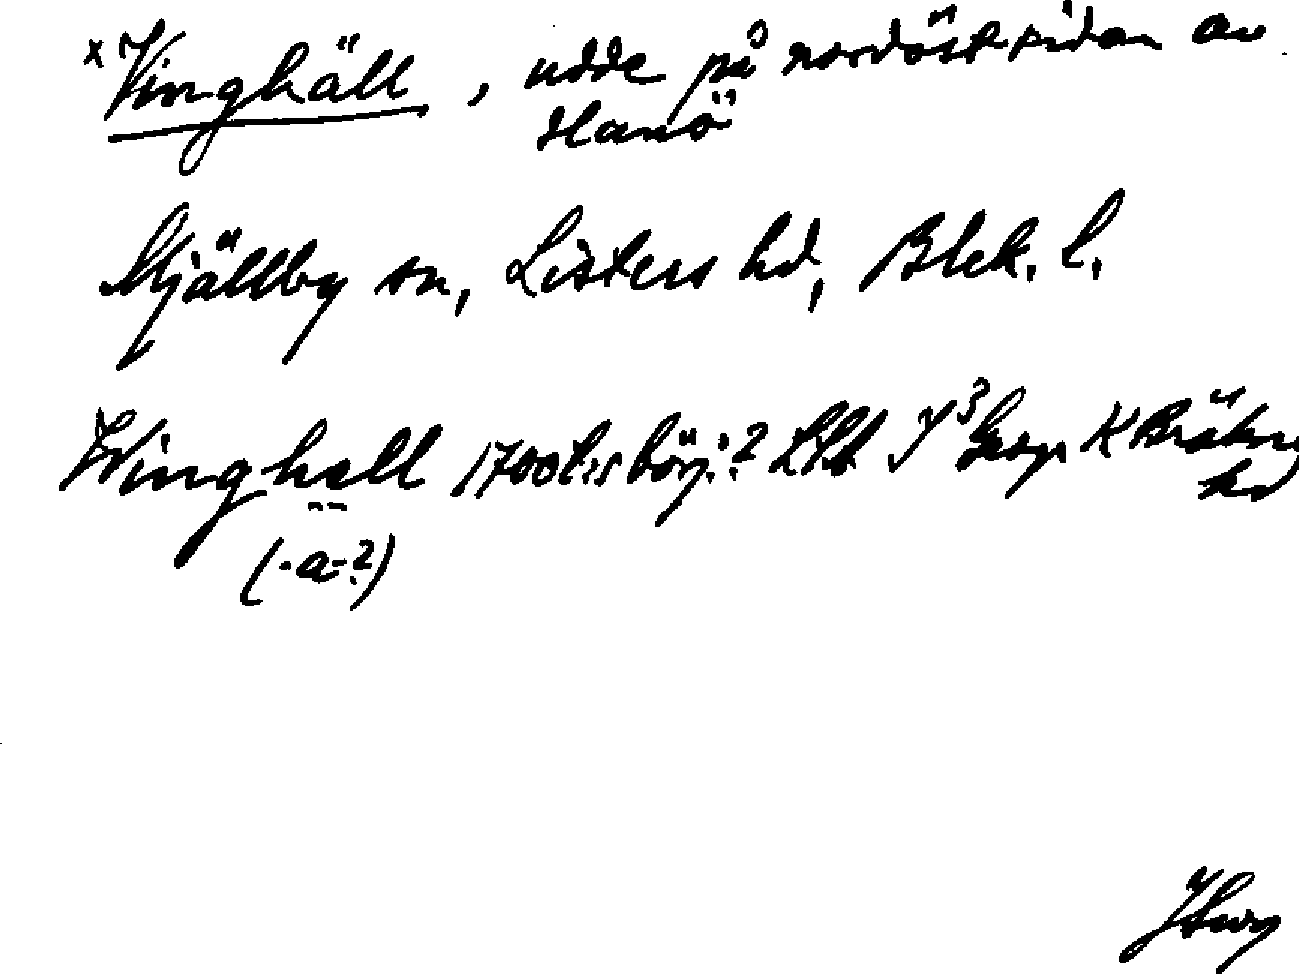 x Vinghäll, udde på nordöstsidan av
Hanö
Mjällby sn, Listers hd, Blek. l.
Winghell 1700t:s börj.? LSA Geogr K Bräkne
hd
(-a-?)